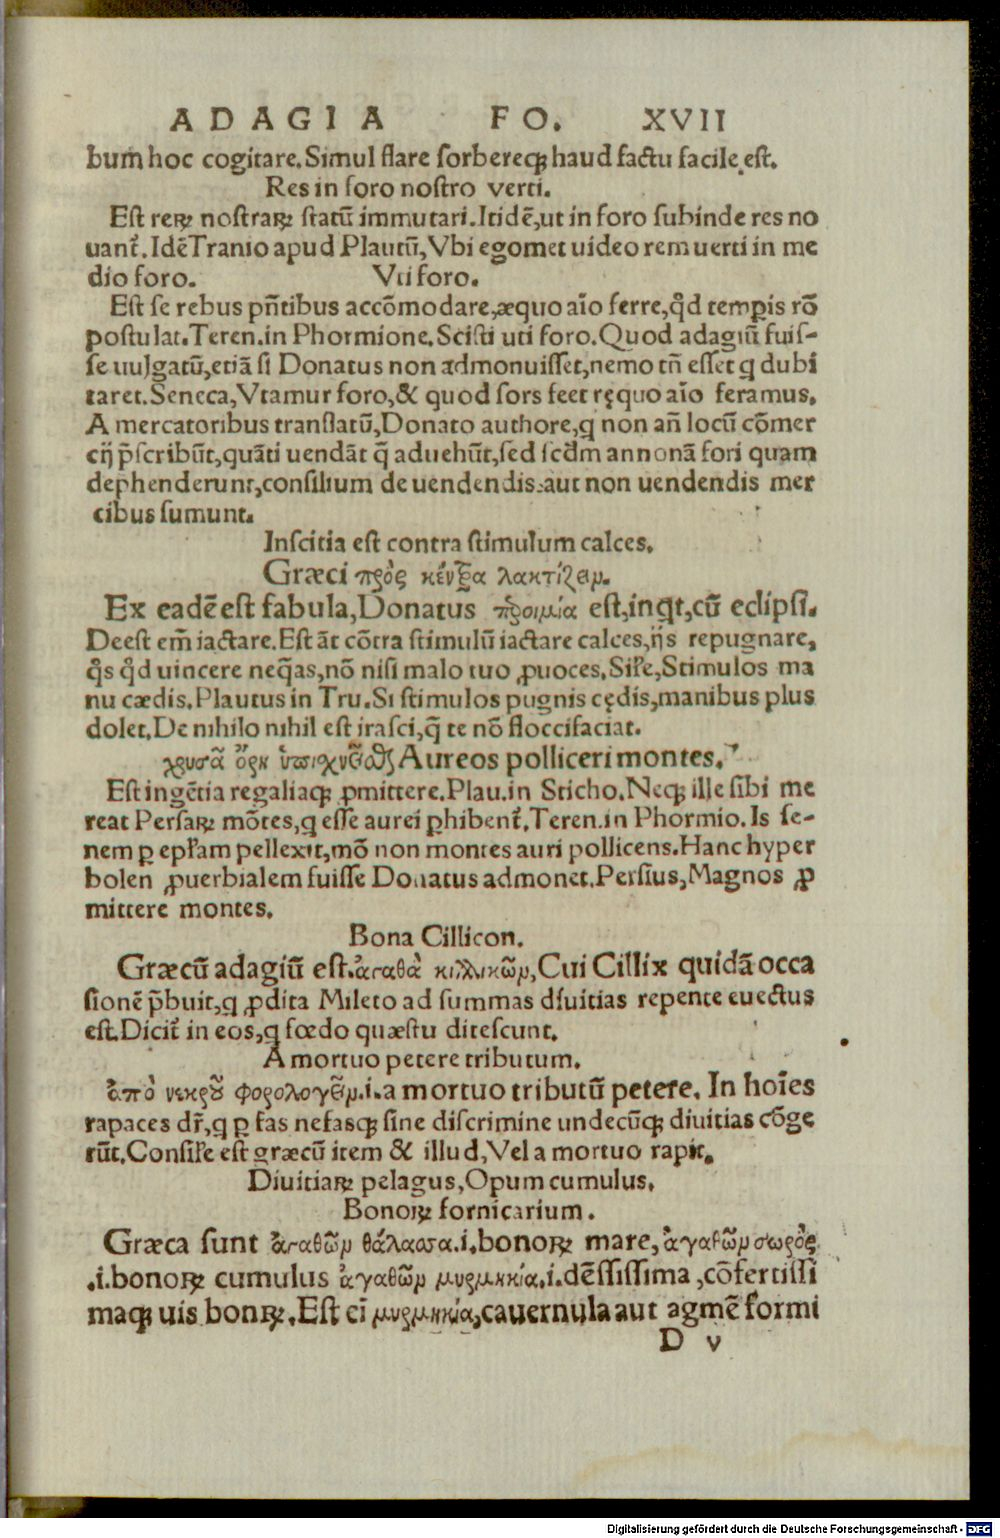 ADAGIA FO. XVII
bum hoc cogitare. Simul flare sorbereqꝫ haud factu facile est.
Res in foro nostro verti.
Est reꝝ nostraꝝ statū immutari. Itidē, ut in foro subinde res no
uant̃. Idē Tranio apud Plautū, Vbi egomet uideo rem uerti in me
dio foro. Vti foro.
Est se rebus pñtibus accōmodare, æquo aīo ferre, qd̃ tempis rō
postulat. Teren. in Phormione. Scisti uti foro. Quod adagiū fuis-
se uulgatū, etiā si Donatus non admonuisset, nemo tñ esset q dubi
taret. Seneca, Vtamur foro, & quod sors feet ręquo aīo feramus.
A mercatoribus translatū, Donato authore, q non añ locū cōmer
cij p̃scribūt, quāti uendāt q̄ aduehūt, sed scd̃m annonā fori quam
dephenderunt, consilium de uendendis aut non uendendis mer
cibus sumunt.
Inscitia est contra stimulum calces.
Græci πρὸς κέντρα λακτίζειν.
Ex eadē est fabula, Donatus παροιμία est, inqt, cū eclipsi.
Deest em̃ iactare. Est āt cōtra stimulū iactare calces, ijs repugnare,
q̃s qd̃ uincere neq̃as, nō nisi malo tuo ꝓuoces. Sil̃e, Stimulos ma
nu cædis. Plautus in Tru. Si stimulos pugnis cędis, manibus plus
dolet. De nihilo nihil est irasci, q̄ te nō floccifaciat.
χρυσᾶ ὄρη ὑπισχνεῖσθαι Aureos polliceri montes.
Est ingētia regaliaqꝫ ꝓmittere. Plau. in Sticho. Neqꝫ ille sibi me
reat Persaꝝ mōtes, q esse aurei ꝑhibent̃. Teren. in Phormio. Is se-
nem ꝑ epl̃am pellexit, mō non montes auri pollicens. Hanc hyper
bolen ꝓuerbialem fuisse Donatus admonet. Persius, Magnos ꝓ
mittere montes.
Bona Cillicon.
Græcū adagiū est. ἀγαθὰ κιλλικῶν, Cui Cillix quidā occa
sionē p̃buit, q ꝓdita Mileto ad summas diuitias repente euectus
est. Dicit̃ in eos, q fœdo quæstu ditescunt.
A mortuo petere tributum.
ἀπὸ νεκροῦ φορολογεῖν .i. a mortuo tributū petere. In hoīes
rapaces dr̃, q ꝑ fas nefasqꝫ sine discrimine undecūqꝫ diuitias cōge
rūt. Consil̃e est græcū item & illud, Vel a mortuo rapit.
Diuitiaꝝ pelagus, Opum cumulus.
Bonoꝝ fornicarium.
Græca sunt ἀγαθῶν θάλασσα .i. bonoꝝ mare, ἀγαθῶν σωρὸς
.i. bonoꝝ cumulus ἀγαθῶν μυρμηκία .i. dēssissima, cōfertissi
maqꝫ uis bonꝝ. Est ei μυρμηκία, cauernula aut agmē formi
D v
Digitalisierung gefördert durch die Deutsche Forschungsgemeinschaft - DFG